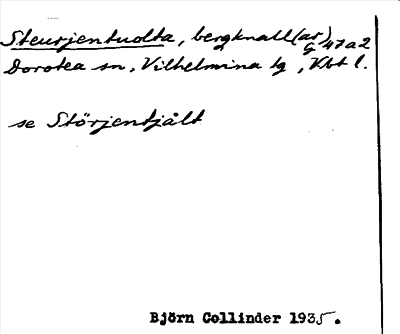 Steurjentuolta, bergknall(ar) G 47 a 2
Dorotea sn, Vilhelmina tg, Kbt l.
se Störjentjålt
Björn Collinder 1935.